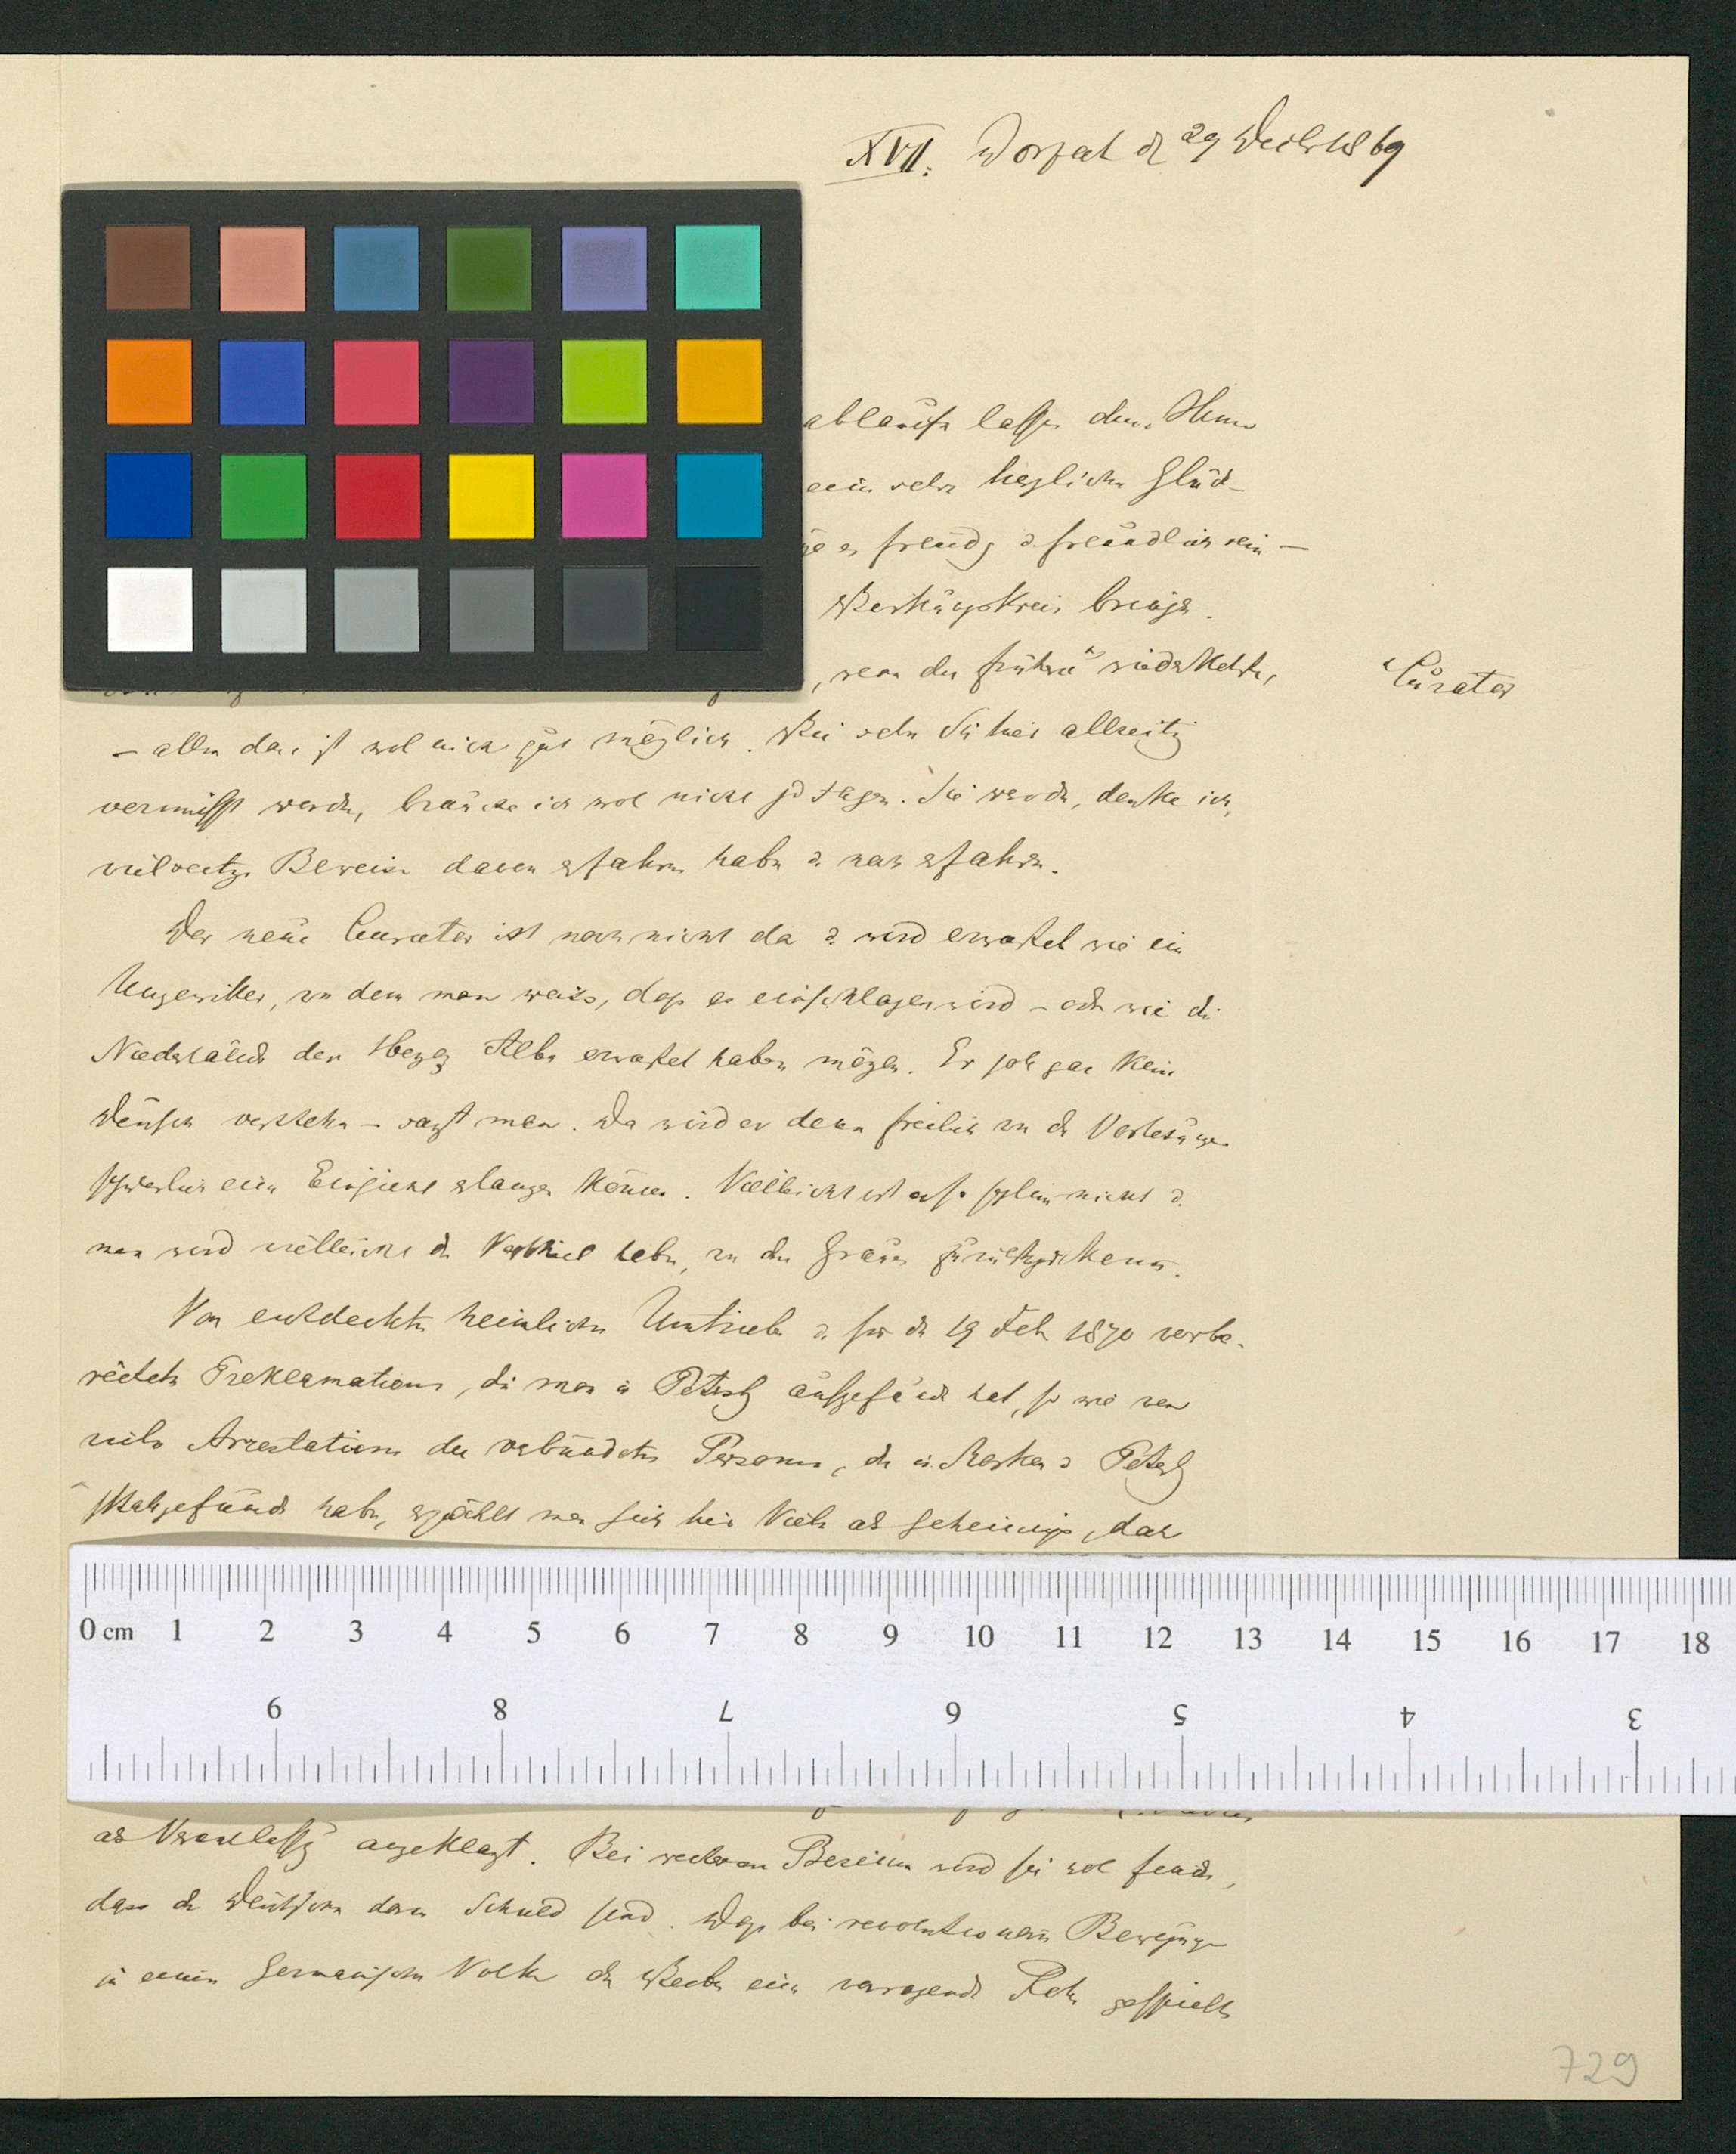 XVII. Dorpat d 29 Decbr 1869
ablaufen lassen, ohne Ihnen
ein sehr herzliches Glück-
es freudig u. freundlich sein —
Wirkungskreis bringen.
, wenn der frühere wiederkehrte,
Curator
– allein das ist wol nicht gut möglich. Wie sehr Sie hier allseitig
vermisst werden, brauche ich wol nicht zu sagen. Sie werden, denke ich,
vielseitige Beweise davon erfahren haben u. noch erfahren.
Der neue Curator ist noch nicht da u. wird erwartet wie ein
Ungewitter, von dem man weiss, dass es einschlagen wird – oder wie die
Niederländer den Herzog Alba erwartet haben mögen. Er soll gar kein
Deutsch verstehn – sagt man. Da wird er denn freilich von den Vorlesungen
schwerlich eine Einsicht erlangen können. Vielleicht ist er so schlimm nicht u.
man wird vielleicht den Vortheil haben, von den zurückzukommen.
Von entdeckten heimlichen Umtrieben u. für den 19 Feb 1870 vorbe-
reiteten Proklamationen, die man in Petersbg aufgefunden hat, so wie von
vielen Arrestationen der verbündeten Personen, die in Moskau u. Petersbg
stattgefunden haben, erzählt man sich hier Vieles als Geheimniss, das
als Veranlassg angeklagt. Bei weiterem Besinnen wird sie wol finden,
dass die Deutschen daran Schuld sind. Dass bei revolutionären Bewegungen
in einem Germanischen Volke die Weiber eine vorragende Rolle gespielt
0 cm 1 2 3 4 5 6 7 8 9 10 11 12 13 14 15 16 17 18
9 8 7 6 5 4 3
729